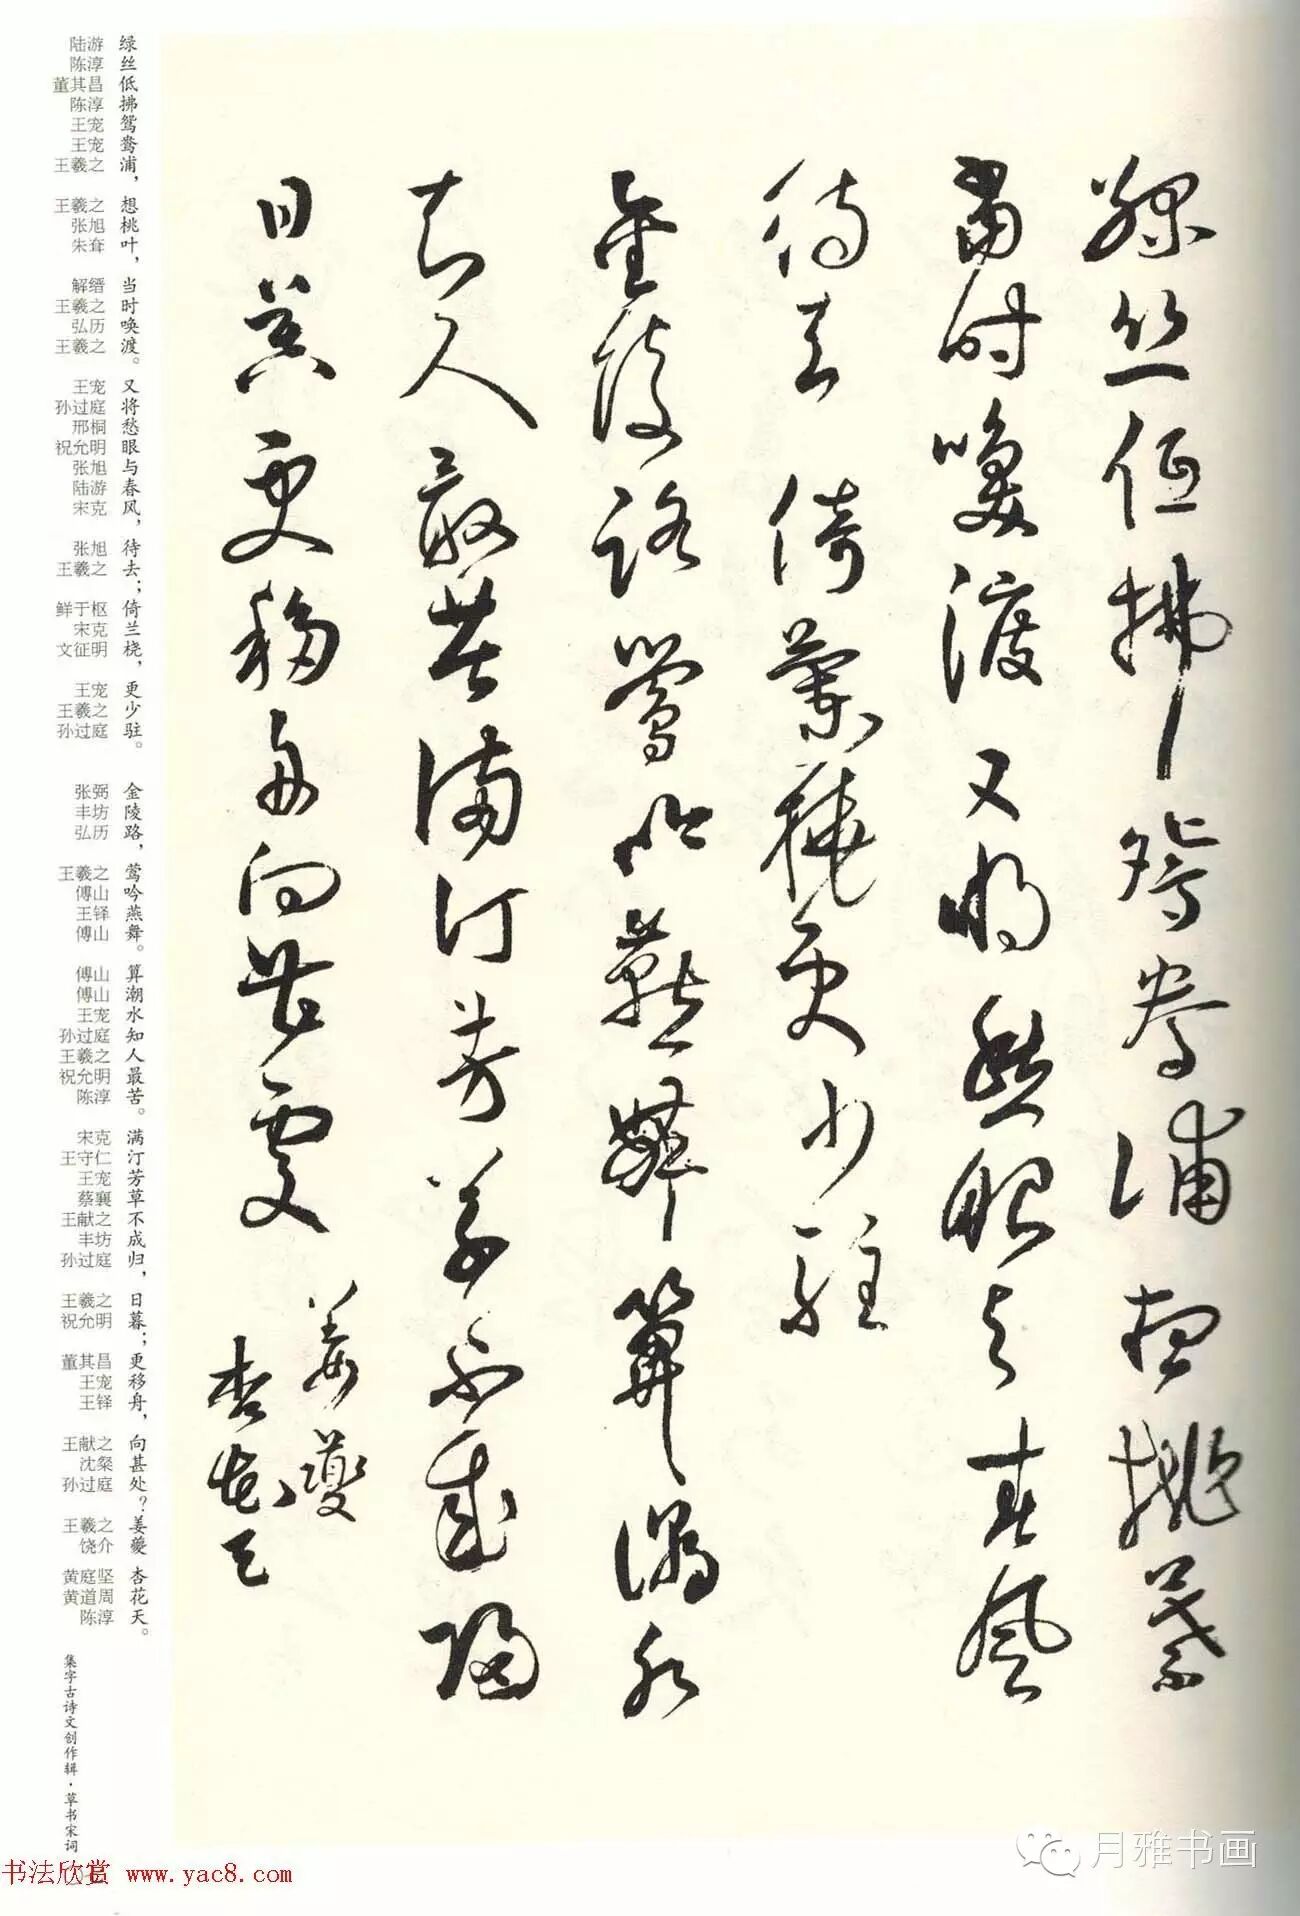 綠絲低拂鴛鴦浦想桃葉
當時喚渡又將愁眼與春風
待去倚蘭橈更少駐
金陵路鶯吟燕舞算潮水
知人最苦滿汀芳草不成歸
日暮更移舟向甚處
姜夔
杏花天
绿丝低拂鸳鸯浦，想桃叶，当时唤渡。又将愁眼与春风，待去；倚兰桡，更少驻。 金陵路，莺吟燕舞。算潮水知人最苦。满汀芳草不成归，日暮；更移舟，向甚处？姜夔 杏花天。
陆游 陈淳 董其昌 陈淳 王宠 王宠 王羲之 王羲之 张旭 朱耷 解缙 王羲之 弘历 王羲之 王宠 孙过庭 邢桐 祝允明 张旭 陆游 宋克 张旭 王羲之 鲜于枢 宋克 文征明 王宠 王羲之 孙过庭 张弼 丰坊 弘历 王羲之 傅山 王铎 傅山 傅山 傅山 王宠 孙过庭 王羲之 祝允明 陈淳 宋克 王守仁 王宠 蔡襄 王献之 丰坊 孙过庭 王羲之 祝允明 董其昌 王宠 王铎 王献之 沈粲 孙过庭 王羲之 饶介 黄庭坚 黄道周 陈淳
集字古诗文创作辑·草书宋词
书法欣赏 www.yac8.com
月雅书画